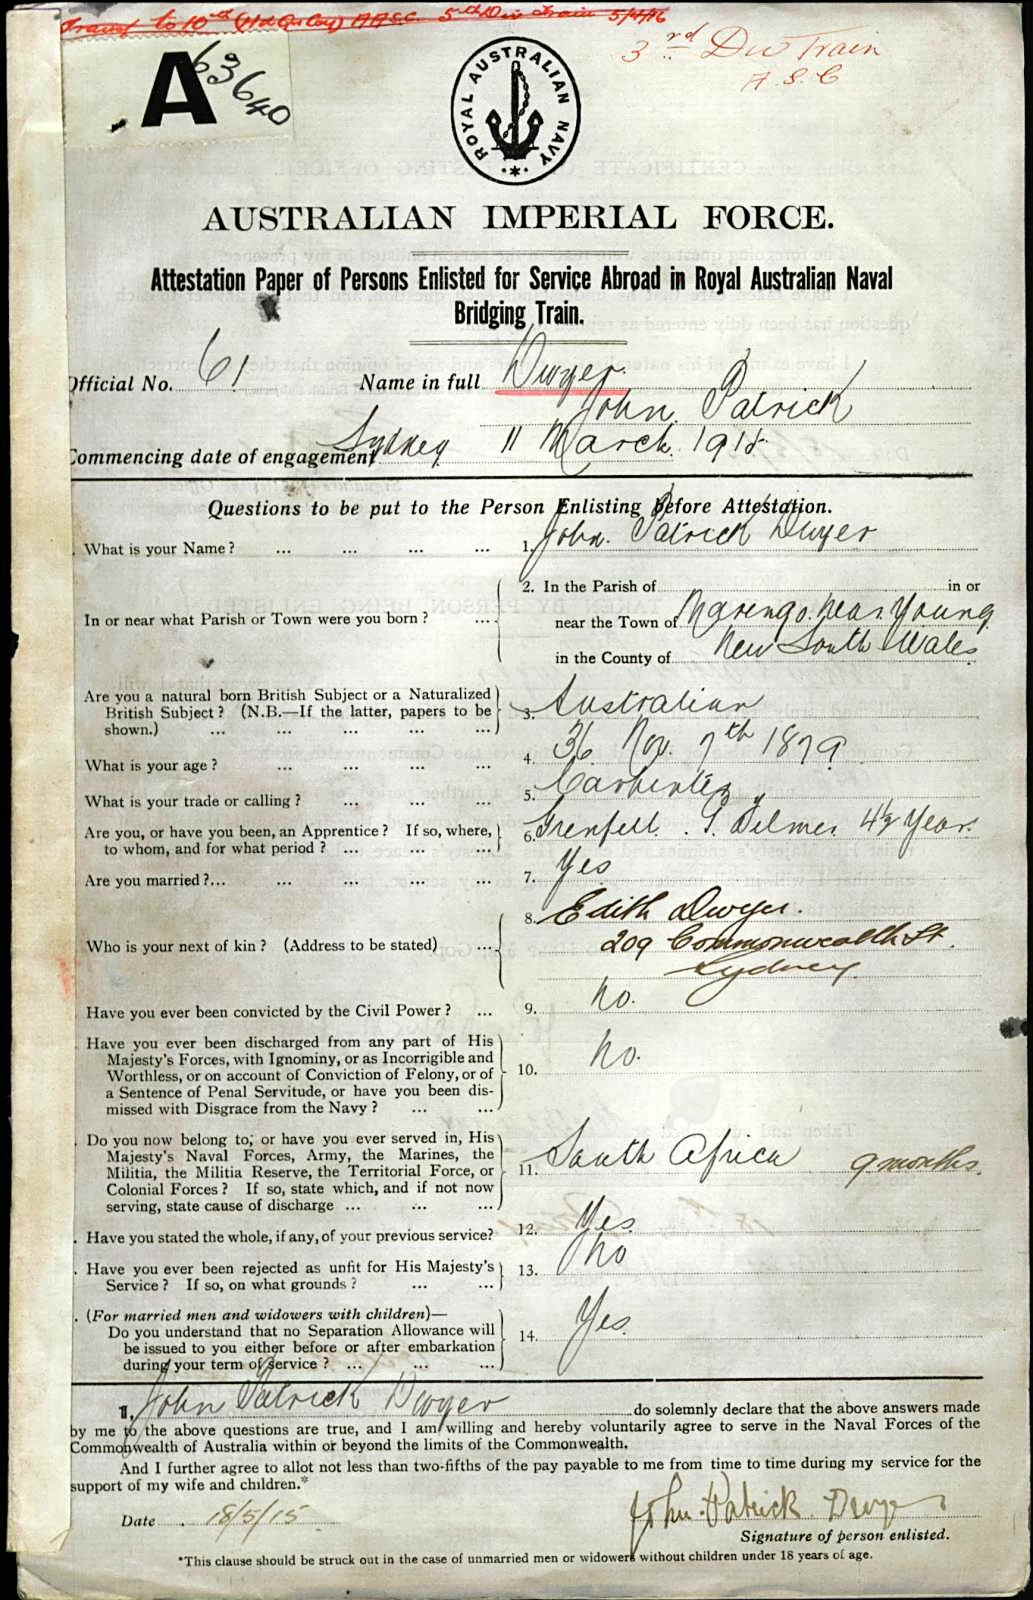 Transf to 10th (Hd Qrs Coy) A.A.S.C. 5th Div Train 5/4/16
A 63640
3rd Div Train
A.S.C
ROYAL AUSTRALIAN NAVY
AUSTRALIAN IMPERIAL FORCE.
Attestation Paper of Persons Enlisted for Service Abroad in Royal Australian Naval
Bridging Train.
Official No. 61 Name in full Dwyer.
John Patrick
Commencing date of engagement Sydney 11 March. 1915.
Questions to be put to the Person Enlisting before Attestation.
What is your Name? ... ... ... ... 1. John. Patrick Dwyer
2. In the Parish of in or
In or near what Parish or Town were you born? ... near the Town of Marengo. near. Young
in the County of New South Wales
Are you a natural born British Subject or a Naturalized
British Subject? (N.B.—If the latter, papers to be 3. Australian
shown.) ... ... ... ...
What is your age? ... ... ... ... 4. 36 Nov. 7th 1879
What is your trade or calling? ... ... ... 5. Carpenter
Are you, or have you been, an Apprentice? If so, where, 6. Grenfell. . Delmer 4½ Year.
to whom, and for what period? ... ... ...
Are you married?... ... ... ... ... 7. Yes
8. Edith Dwyer.
Who is your next of kin? (Address to be stated) ... 209 Commonwealth St.
Sydney.
Have you ever been convicted by the Civil Power? ... 9. No.
Have you ever been discharged from any part of His
Majesty's Forces, with Ignominy, or as Incorrigible and
Worthless, or on account of Conviction of Felony, or of 10. No.
a Sentence of Penal Servitude, or have you been dis-
missed with Disgrace from the Navy? ... ...
Do you now belong to, or have you ever served in, His
Majesty's Naval Forces, Army, the Marines, the
Militia, the Militia Reserve, the Territorial Force, or 11. South Africa 9 months.
Colonial Forces? If so, state which, and if not now
serving, state cause of discharge ... ... ...
Have you stated the whole, if any, of your previous service? 12. Yes
Have you ever been rejected as unfit for His Majesty's 13. No
Service? If so, on what grounds? ... ...
(For married men and widowers with children)—
Do you understand that no Separation Allowance will 14. Yes.
be issued to you either before or after embarkation
during your term of service? ... ... ...
I, John Patrick Dwyer do solemnly declare that the above answers made
by me to the above questions are true, and I am willing and hereby voluntarily agree to serve in the Naval Forces of the
Commonwealth of Australia within or beyond the limits of the Commonwealth.
And I further agree to allot not less than two-fifths of the pay payable to me from time to time during my service for the
support of my wife and children.*
Date 18/5/15 John. Patrick. Dwyer
Signature of person enlisted.
*This clause should be struck out in the case of unmarried men or widowers without children under 18 years of age.